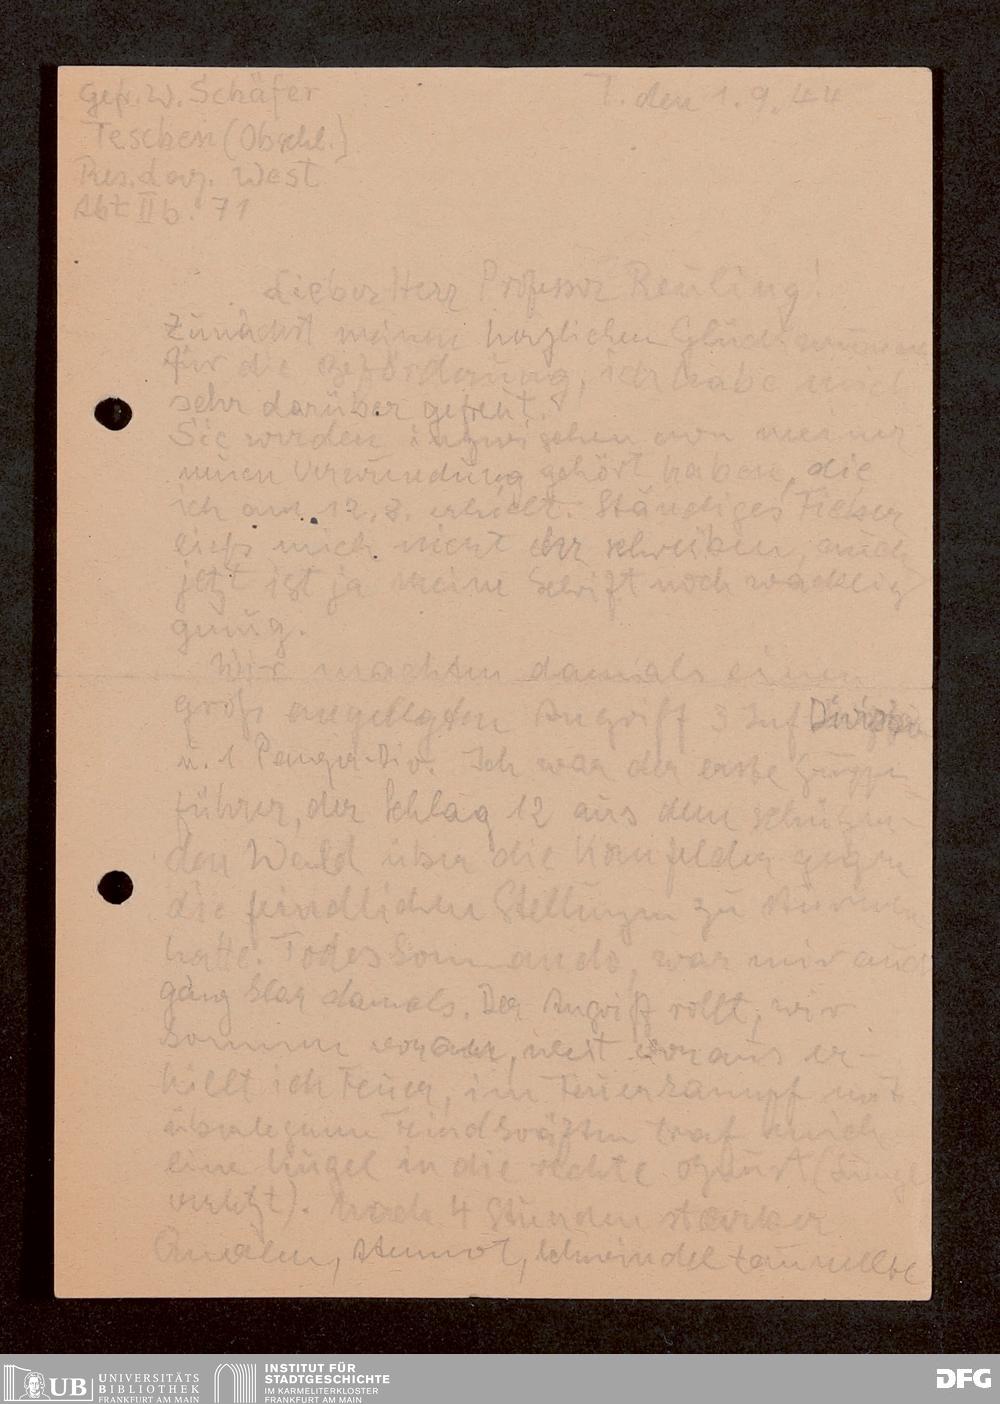 Gefr. W. Schäfer
T. den 1.9.44
Teschen (Obschl.)
Res. Laz. West
Abt II b. 71
Lieber Herr Professor Reuling!
Zunächst meinen herzlichen Glückwunsch
für die Beförderung, ich habe mich
sehr darüber gefreut.
Sie werden inzwischen von meiner
neuen Verwundung gehört haben, die
ich am 12.8. erhielt. Ständiges Fieber
ließ mich nicht eher schreiben, auch
jetzt ist ja meine Schrift noch wacklig
genug.
Wir machten damals einen
groß angelegten Angriff 3 Inf Division
u. 1 Panzer-Div. Ich war der erste Gruppen-
führer, der Schlag 12 aus dem schützen-
den Wald über die Kornfelder gegen
die feindlichen Stellungen zu stürmen
hatte. Todeskommando, war mir auch
ganz klar damals. Der Angriff rollt, wir
kommen voran, weit voraus er-
hielt ich Feuer, im Feuerkampf mit
überlegenen Feindkräften traf mich
eine Kugel in die rechte Brust (Lunge
verletzt). Nach 4 Stunden starker
Qualen, Atemnot, Schwindel taumelte
UB UNIVERSITÄTS
BIBLIOTHEK
FRANKFURT AM MAIN
INSTITUT FÜR
STADTGESCHICHTE
IM KARMELITERKLOSTER
FRANKFURT AM MAIN
DFG